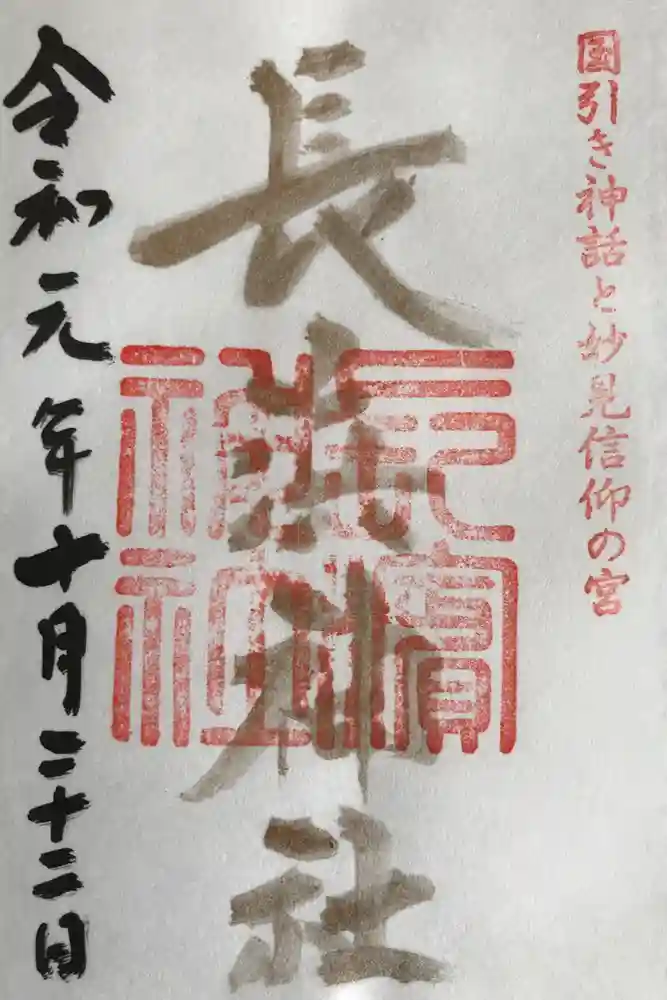 国引き神話と妙見信仰の宮
長浜神社
長濱
神社
令和元年十月二十二日